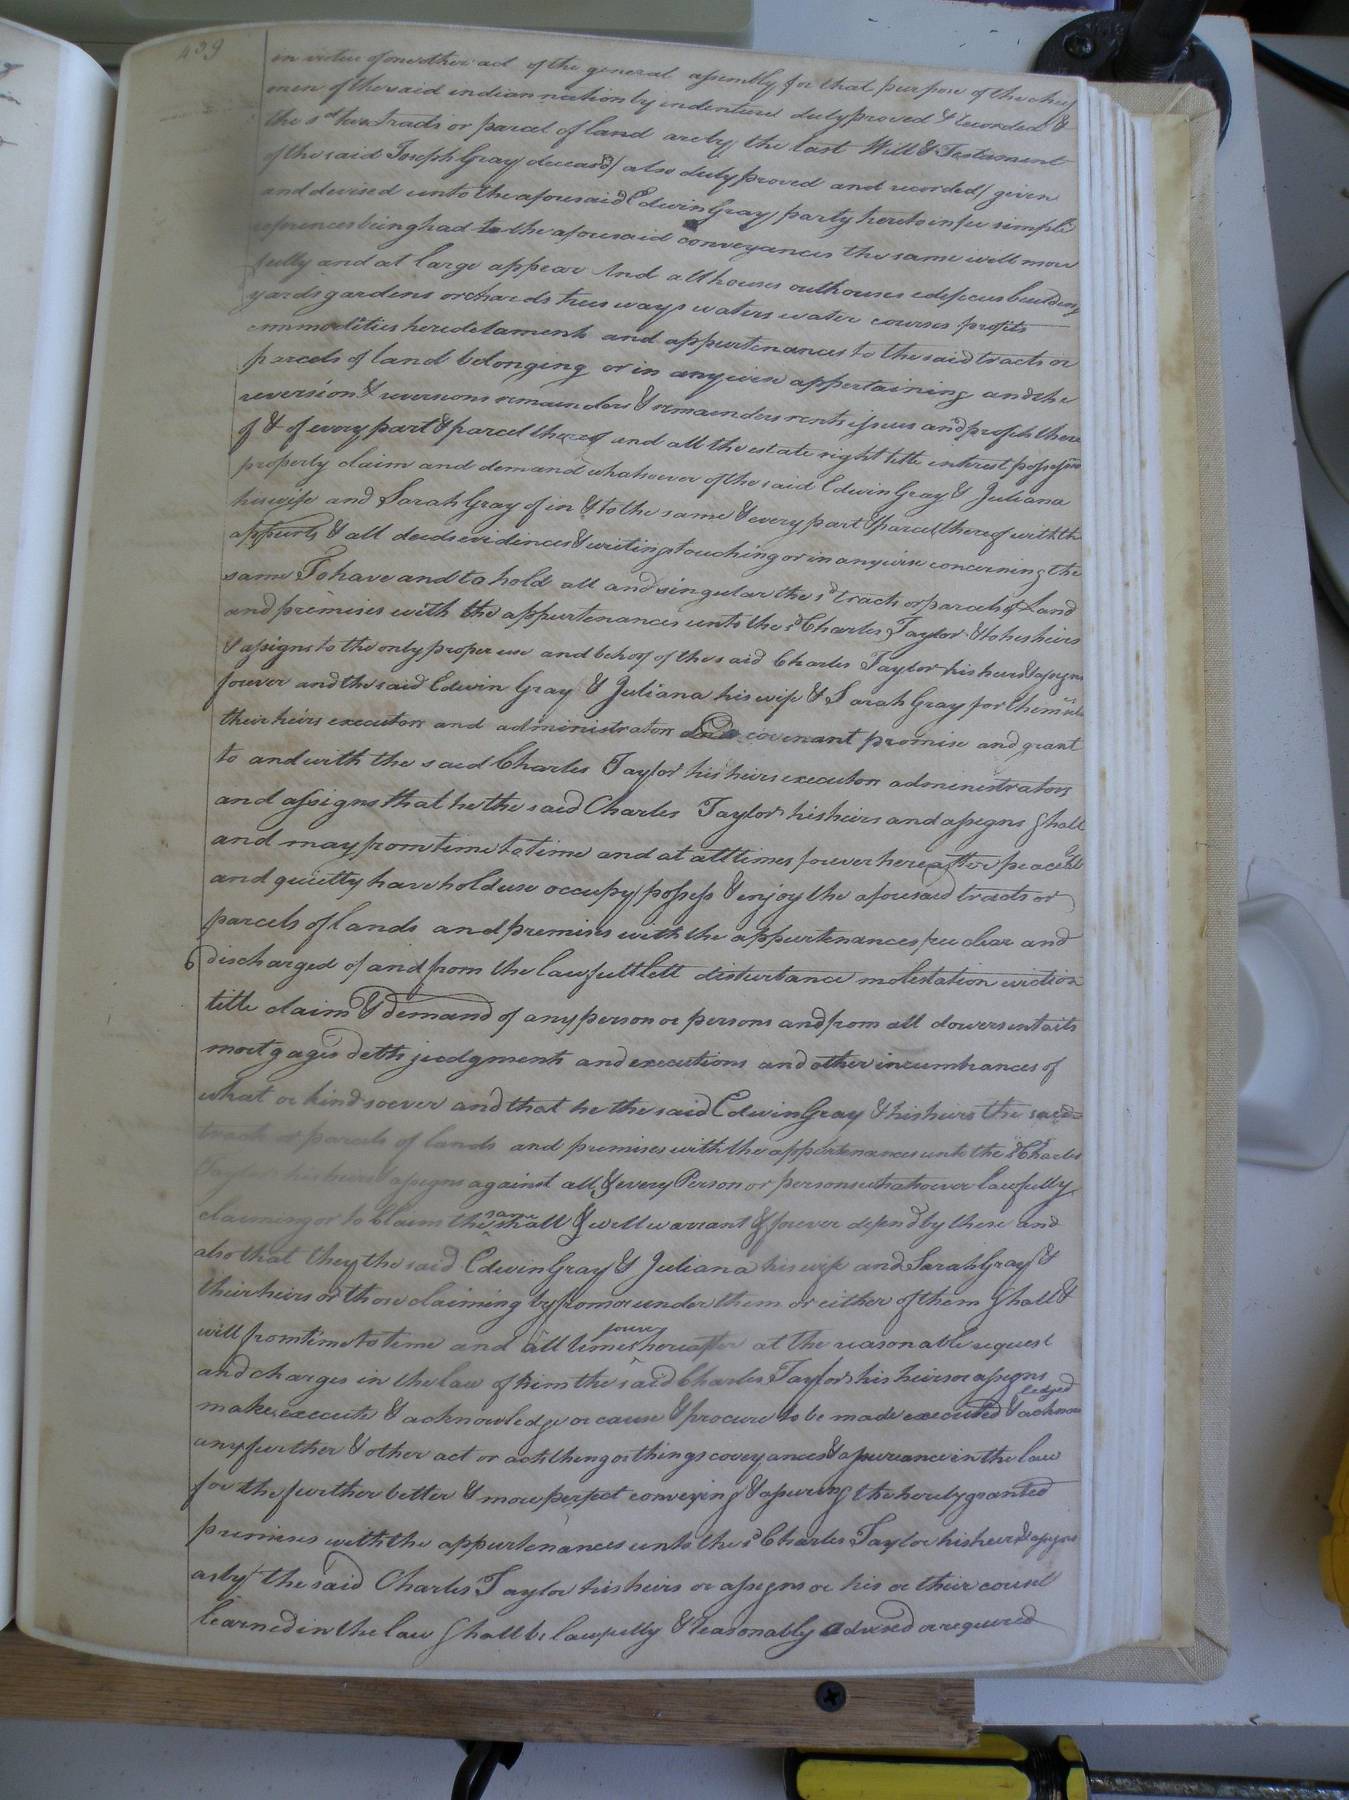 439
in virtue of another act of the general assembly for that purpose of the chief
men of the said indian nation by indenture duly proved & recorded &
the sd two tracts or parcel of land are by the last Will & Testament
of the said Joseph Gray deceasd / also duly proved and recorded / given
and devised unto the aforesaid Edwin Gray party hereto in fee simple
refrences being had to the aforesaid conveyances the same will more
fully and at large appear And all houses outhouses edifices buildings
yards gardens orchards trees ways waters water courses profits
commodities heredetaments and appurtenances to the said tracts or
parcels of land belonging or in any wise appertaining and the
reversion & reversions remainders & remainders rents issues and profits there
of & of every part & parcel thereof and all the estate right title interest possession
property claim and demand whatsoever of the said Edwin Gray & Juliana
his wife and Sarah Gray of in & to the same & every part & parcel thereof with th
appurts & all deeds evidences & writings touching or in anywise concerning the
same To have and to hold all and singular the sd tracts or parcels of Land
and premises with the appurtenances unto the sd Charles Taylor & to his heirs
& assigns to the only proper use and behoof of the said Charles Taylor his heirs & assigns
forever and the said Edwin Gray & Juliana his wife & Sarah Gray for themselves
their heirs executors and administrators covenant promise and grant
to and with the said Charles Taylor his heirs executors administrators
and assigns that he the said Charles Taylor his heirs and assigns shall
and may from time to time and at all times forever hereafter peaceable
and quietly have hold use occupy possess & enjoy the aforesaid tracts or
parcels of lands and premises with the appurtenances free clear and
discharged of and from the lawfull lett disturbance molestation eviction
title claim & demand of any person or persons and from all dowers intails
mortgages debts judgments and executions and other incumbrances of
what or kind soever and that he the said Edwin Gray & his heirs the said
tracts or parcels of lands and premises with the appurtenances unto the sd Charles
Taylor his heirs & assigns against all & every Person or persons whatsoever lawfully
claiming or to Claim the same shall & will warrant & forever defend by these and
also that they the said Edwin Gray & Juliana his wife and Sarah Gray &
their heirs or those claiming by from or under them or either of them shall &
will from time to time and all times forever hereafter at the reasonable request
and charges in the law of him the said Charles Taylor his heirs or assigns
make execute & acknowledge or cause & procure to be made executed & acknowledged
any further & other act or acts thing or things coveyances & assureance in the law
for the further better & more perfect conveying & assuring the hereby granted
premises with the appurtenances unto the sd Charles Taylor his heirs & assigns
as by the said Charles Taylor his heirs or assigns or his or their counsel
learned in the law shall be lawfully & reasonably advised or required